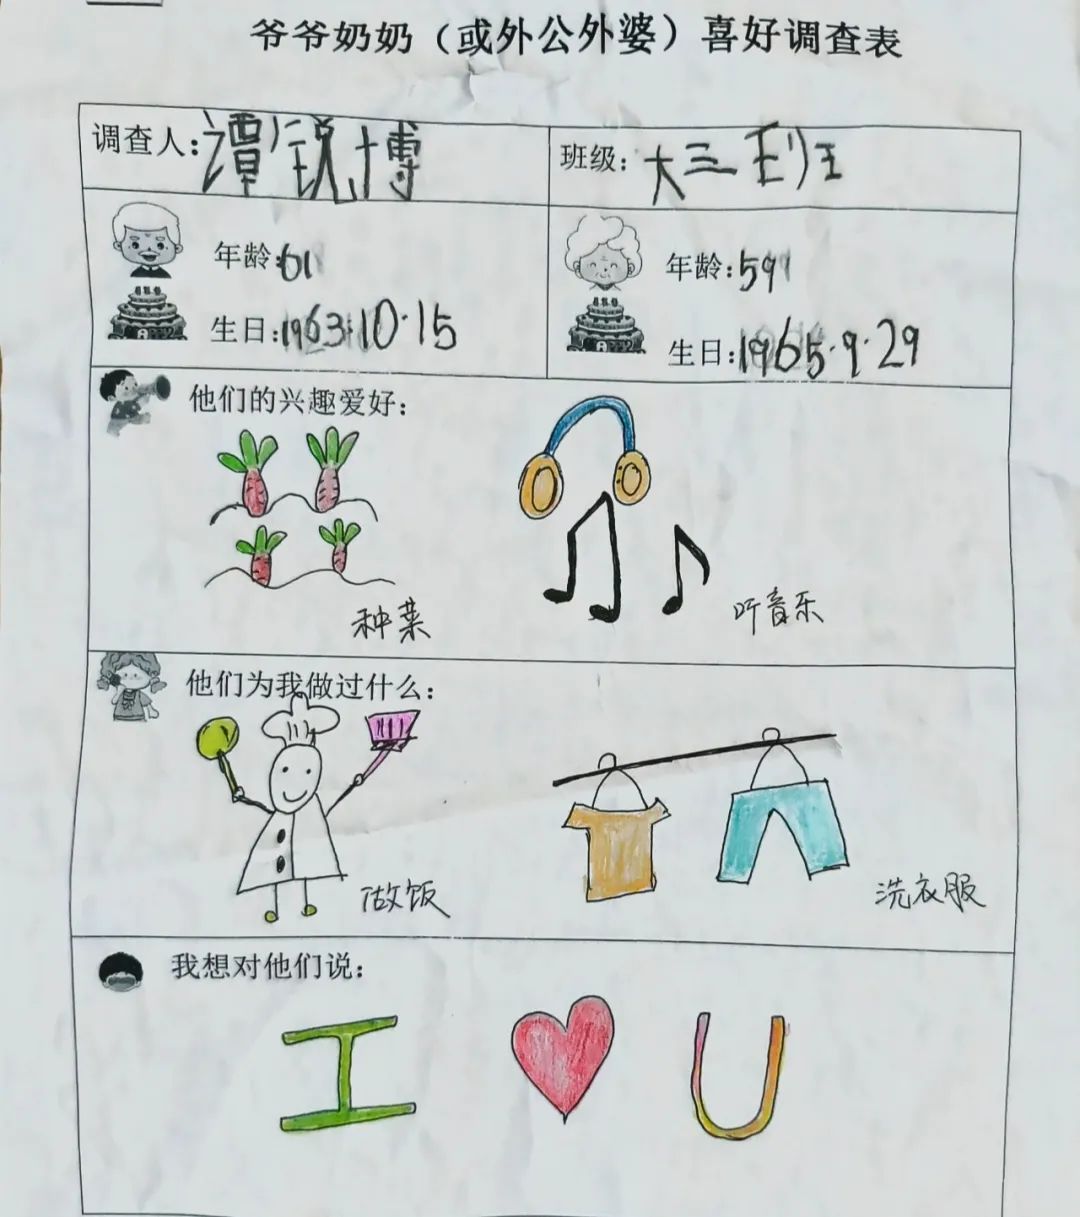 爷爷奶奶（或外公外婆）喜好调查表
调查人：谭锐博
班级：大三班
年龄：61
生日：1963.10.15
年龄：59
生日：1965.9.29
他们的兴趣爱好：
种菜
听音乐
他们为我做过什么：
做饭
洗衣服
我想对他们说：
I ❤ U